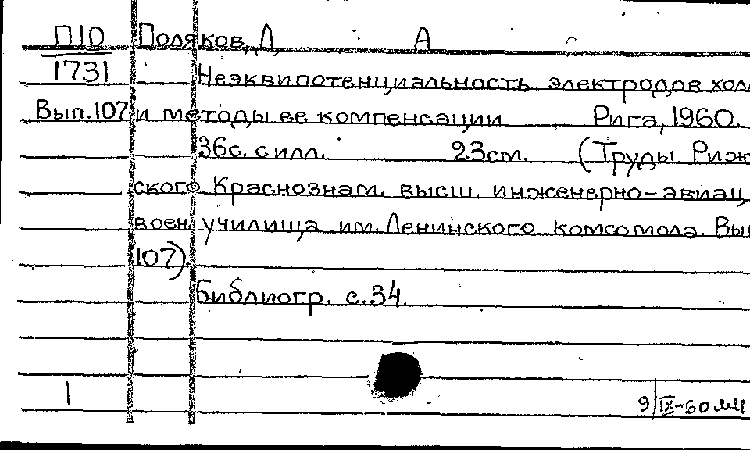 П10 Поляков, Д А
1731 Неэквипотенциальность электродов хол
Вып.107 и методы ее компенсации Рига, 1960.
36с. с илл. 23см. (Труды Риж
ского Краснознам. высш. инженерно-авиац.
воен. училища им. Ленинского комсомола. Вып
107).
Библиогр. с.34.
1
9/IX-60